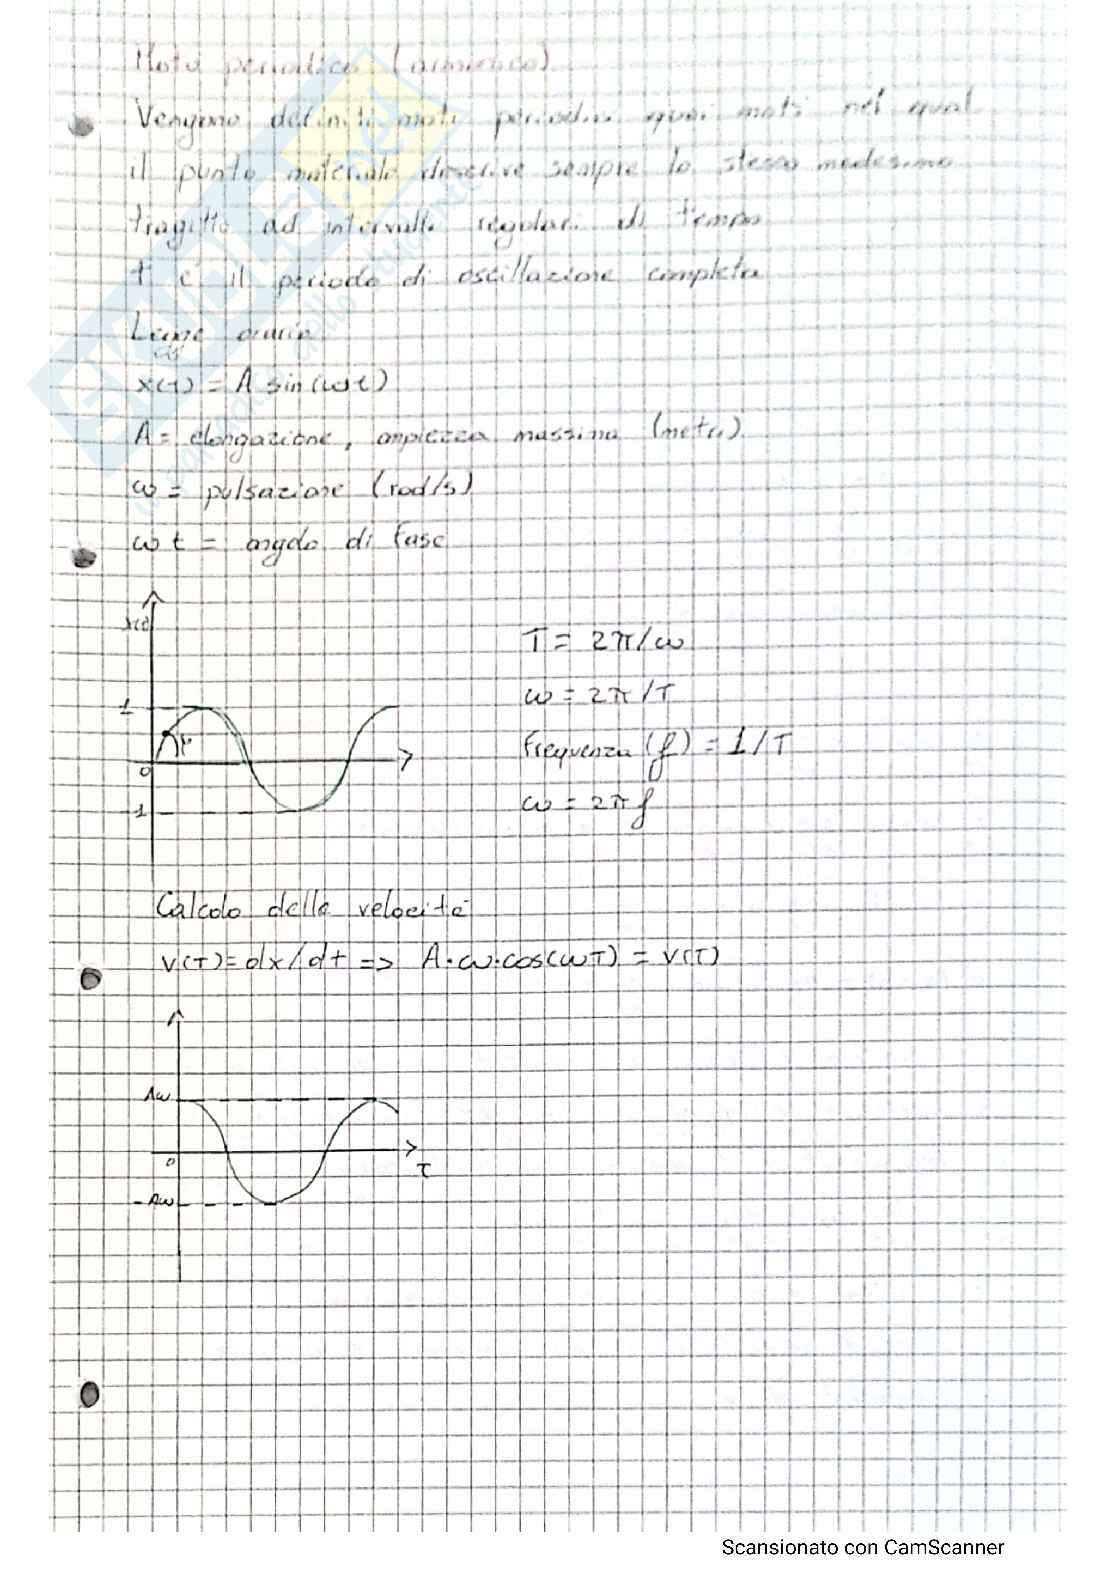 Moto periodico (armonico)
Vengono definiti moti periodici quei moti nel qual
il punto materiale descrive sempre lo stesso medesimo
tragitto ad intervalli regolari di tempo
t è il periodo di oscillazione completa
Legge oraria
x(t) = A sin(ωt)
A = elongazione, ampiezza massima (metri)
ω = pulsazione (rad/s)
ωt = angolo di fase
x(t)
1
0
-1
T = 2π/ω
ω = 2π/T
Frequenza (f) = 1/T
ω = 2πf
Calcolo della velocità
v(T) = dx/dt => A·ω·cos(ωT) = v(T)
Aω
0
T
-Aω
Scansionato con CamScanner